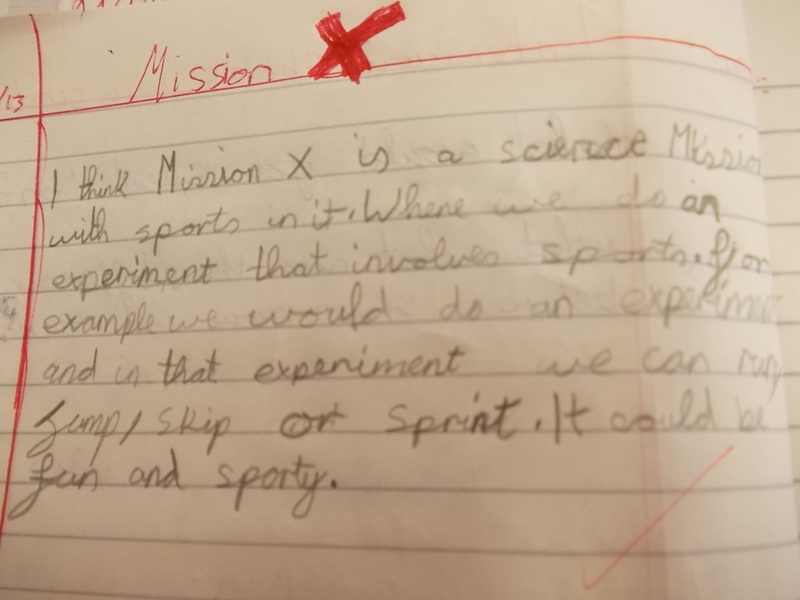 Mission X
/13
I think Mission X is a science Mission
with sports in it. Where we do an
experiment that involves sports. For
example we would do an experiment
and in that experiment we can run,
jump, skip or sprint. It could be
fun and sporty.